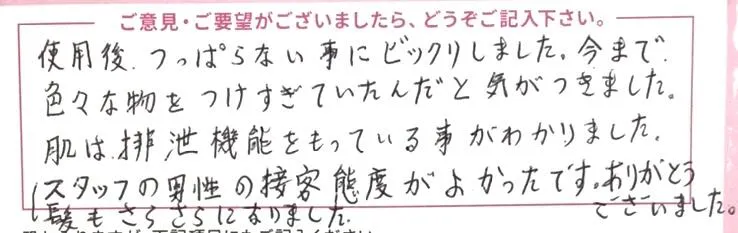 ご意見・ご要望がございましたら、どうぞご記入下さい。
使用後、つっぱらない事にビックリしました。今まで、
色々な物をつけすぎていたんだと気がつきました。
肌は、排泄機能をもっている事がわかりました。
スタッフの男性の接客態度がよかったです。ありがとう
ございました。
髪もさらさらになりました。